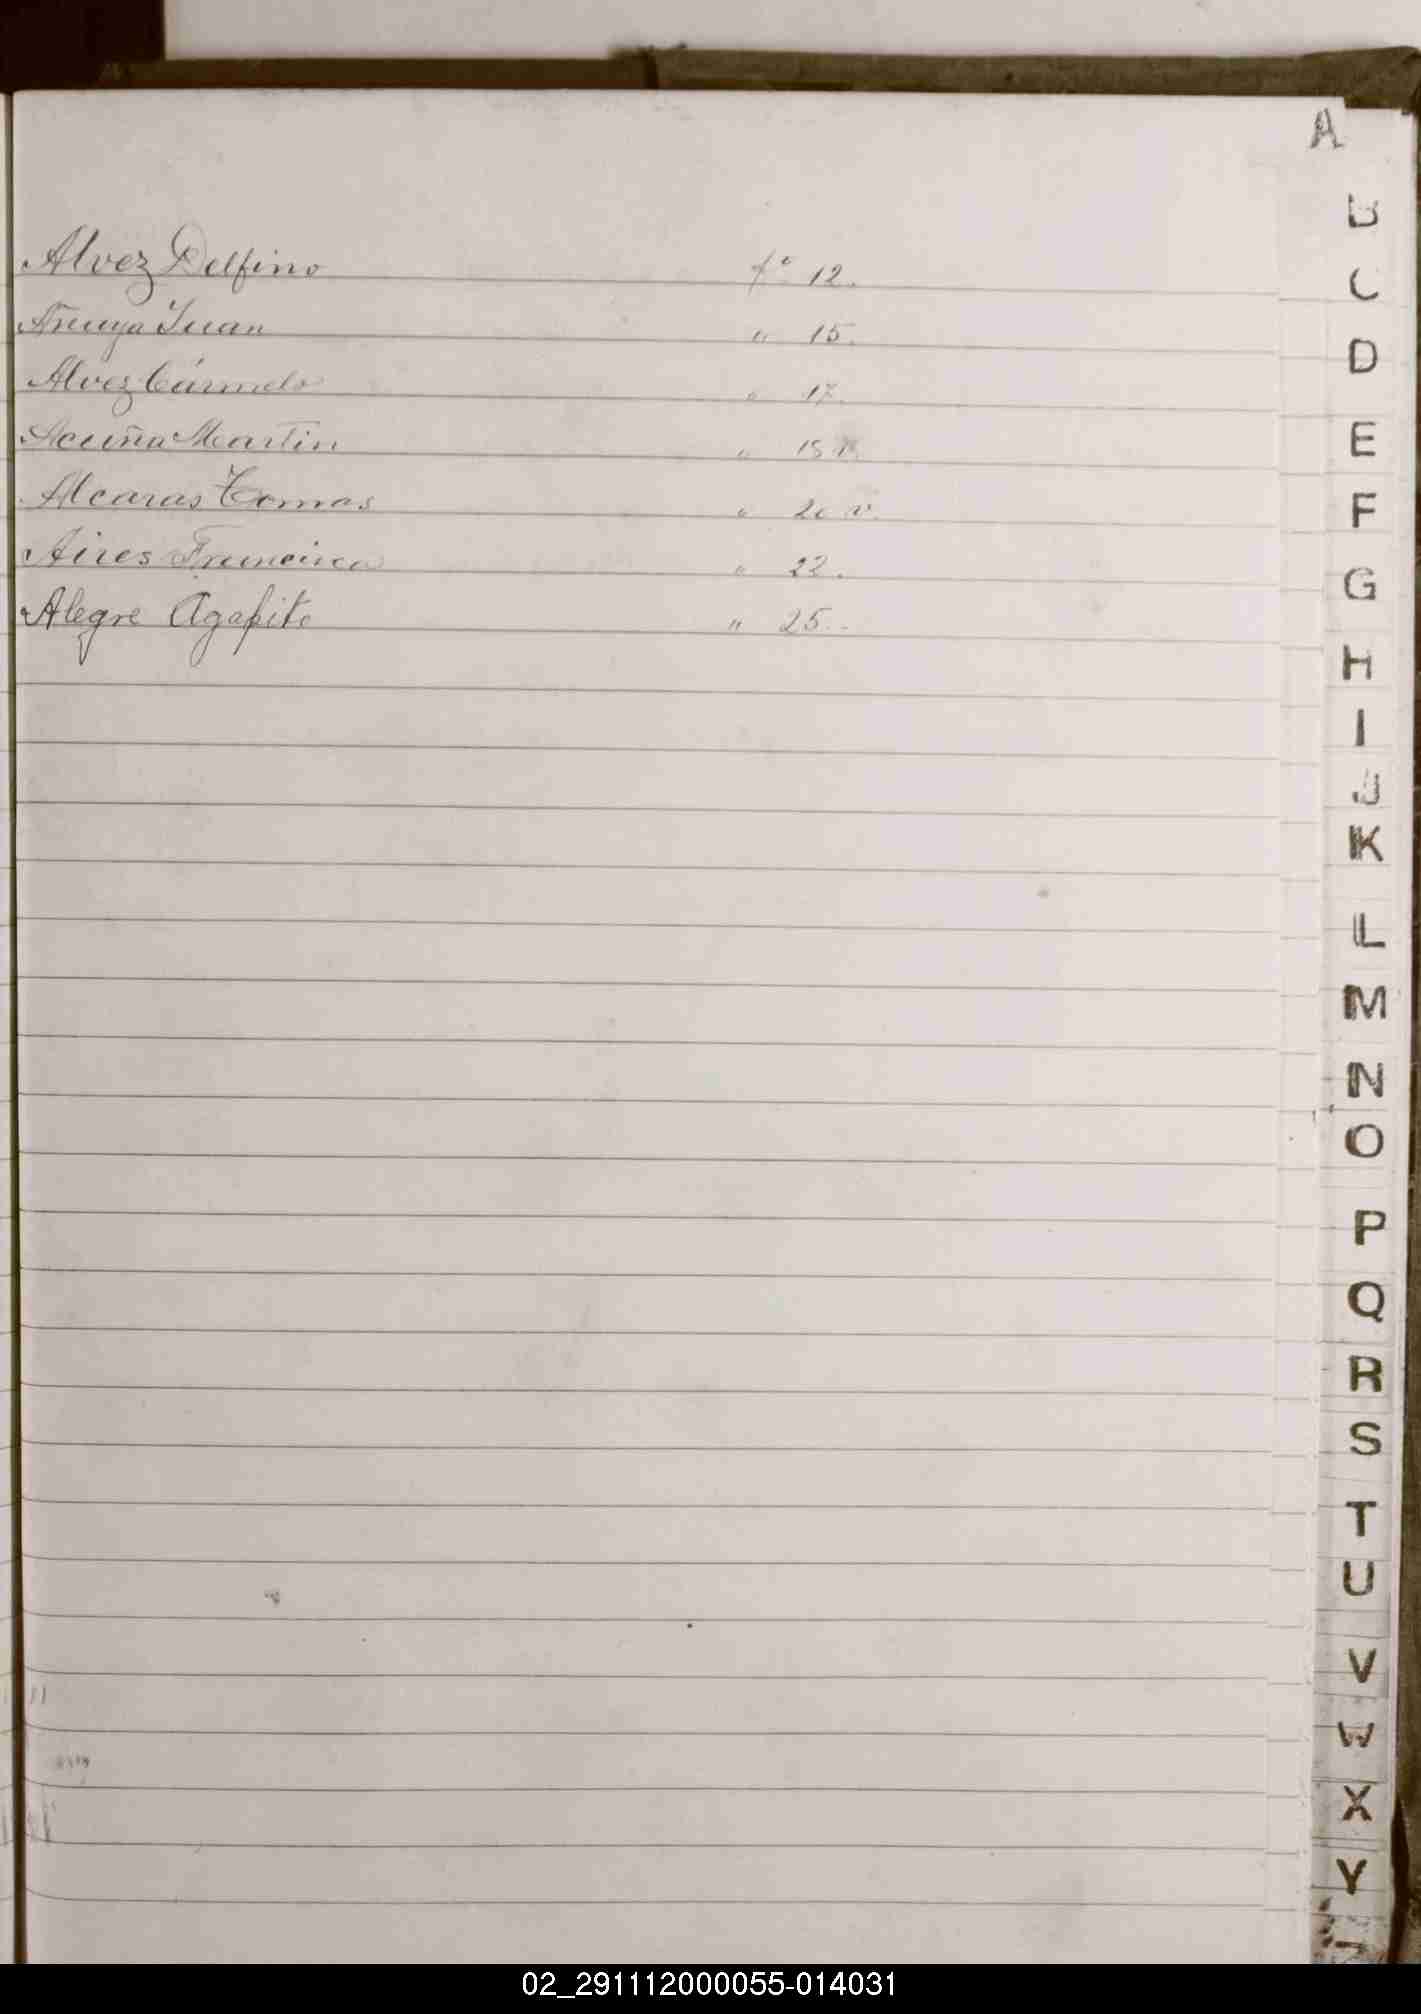 A
Alvez Delfino fº 12.
Juan " 15.
Alvez Cármelo " 17.
Acuña Martin " 18
Alcaras Tomas " 20 v.
Aires Francisca " 22.
Alegre Agapito " 25.
B
C
D
E
F
G
H
I
J
K
L
M
N
O
P
Q
R
S
T
U
V
W
X
Y
02_291112000055-014031